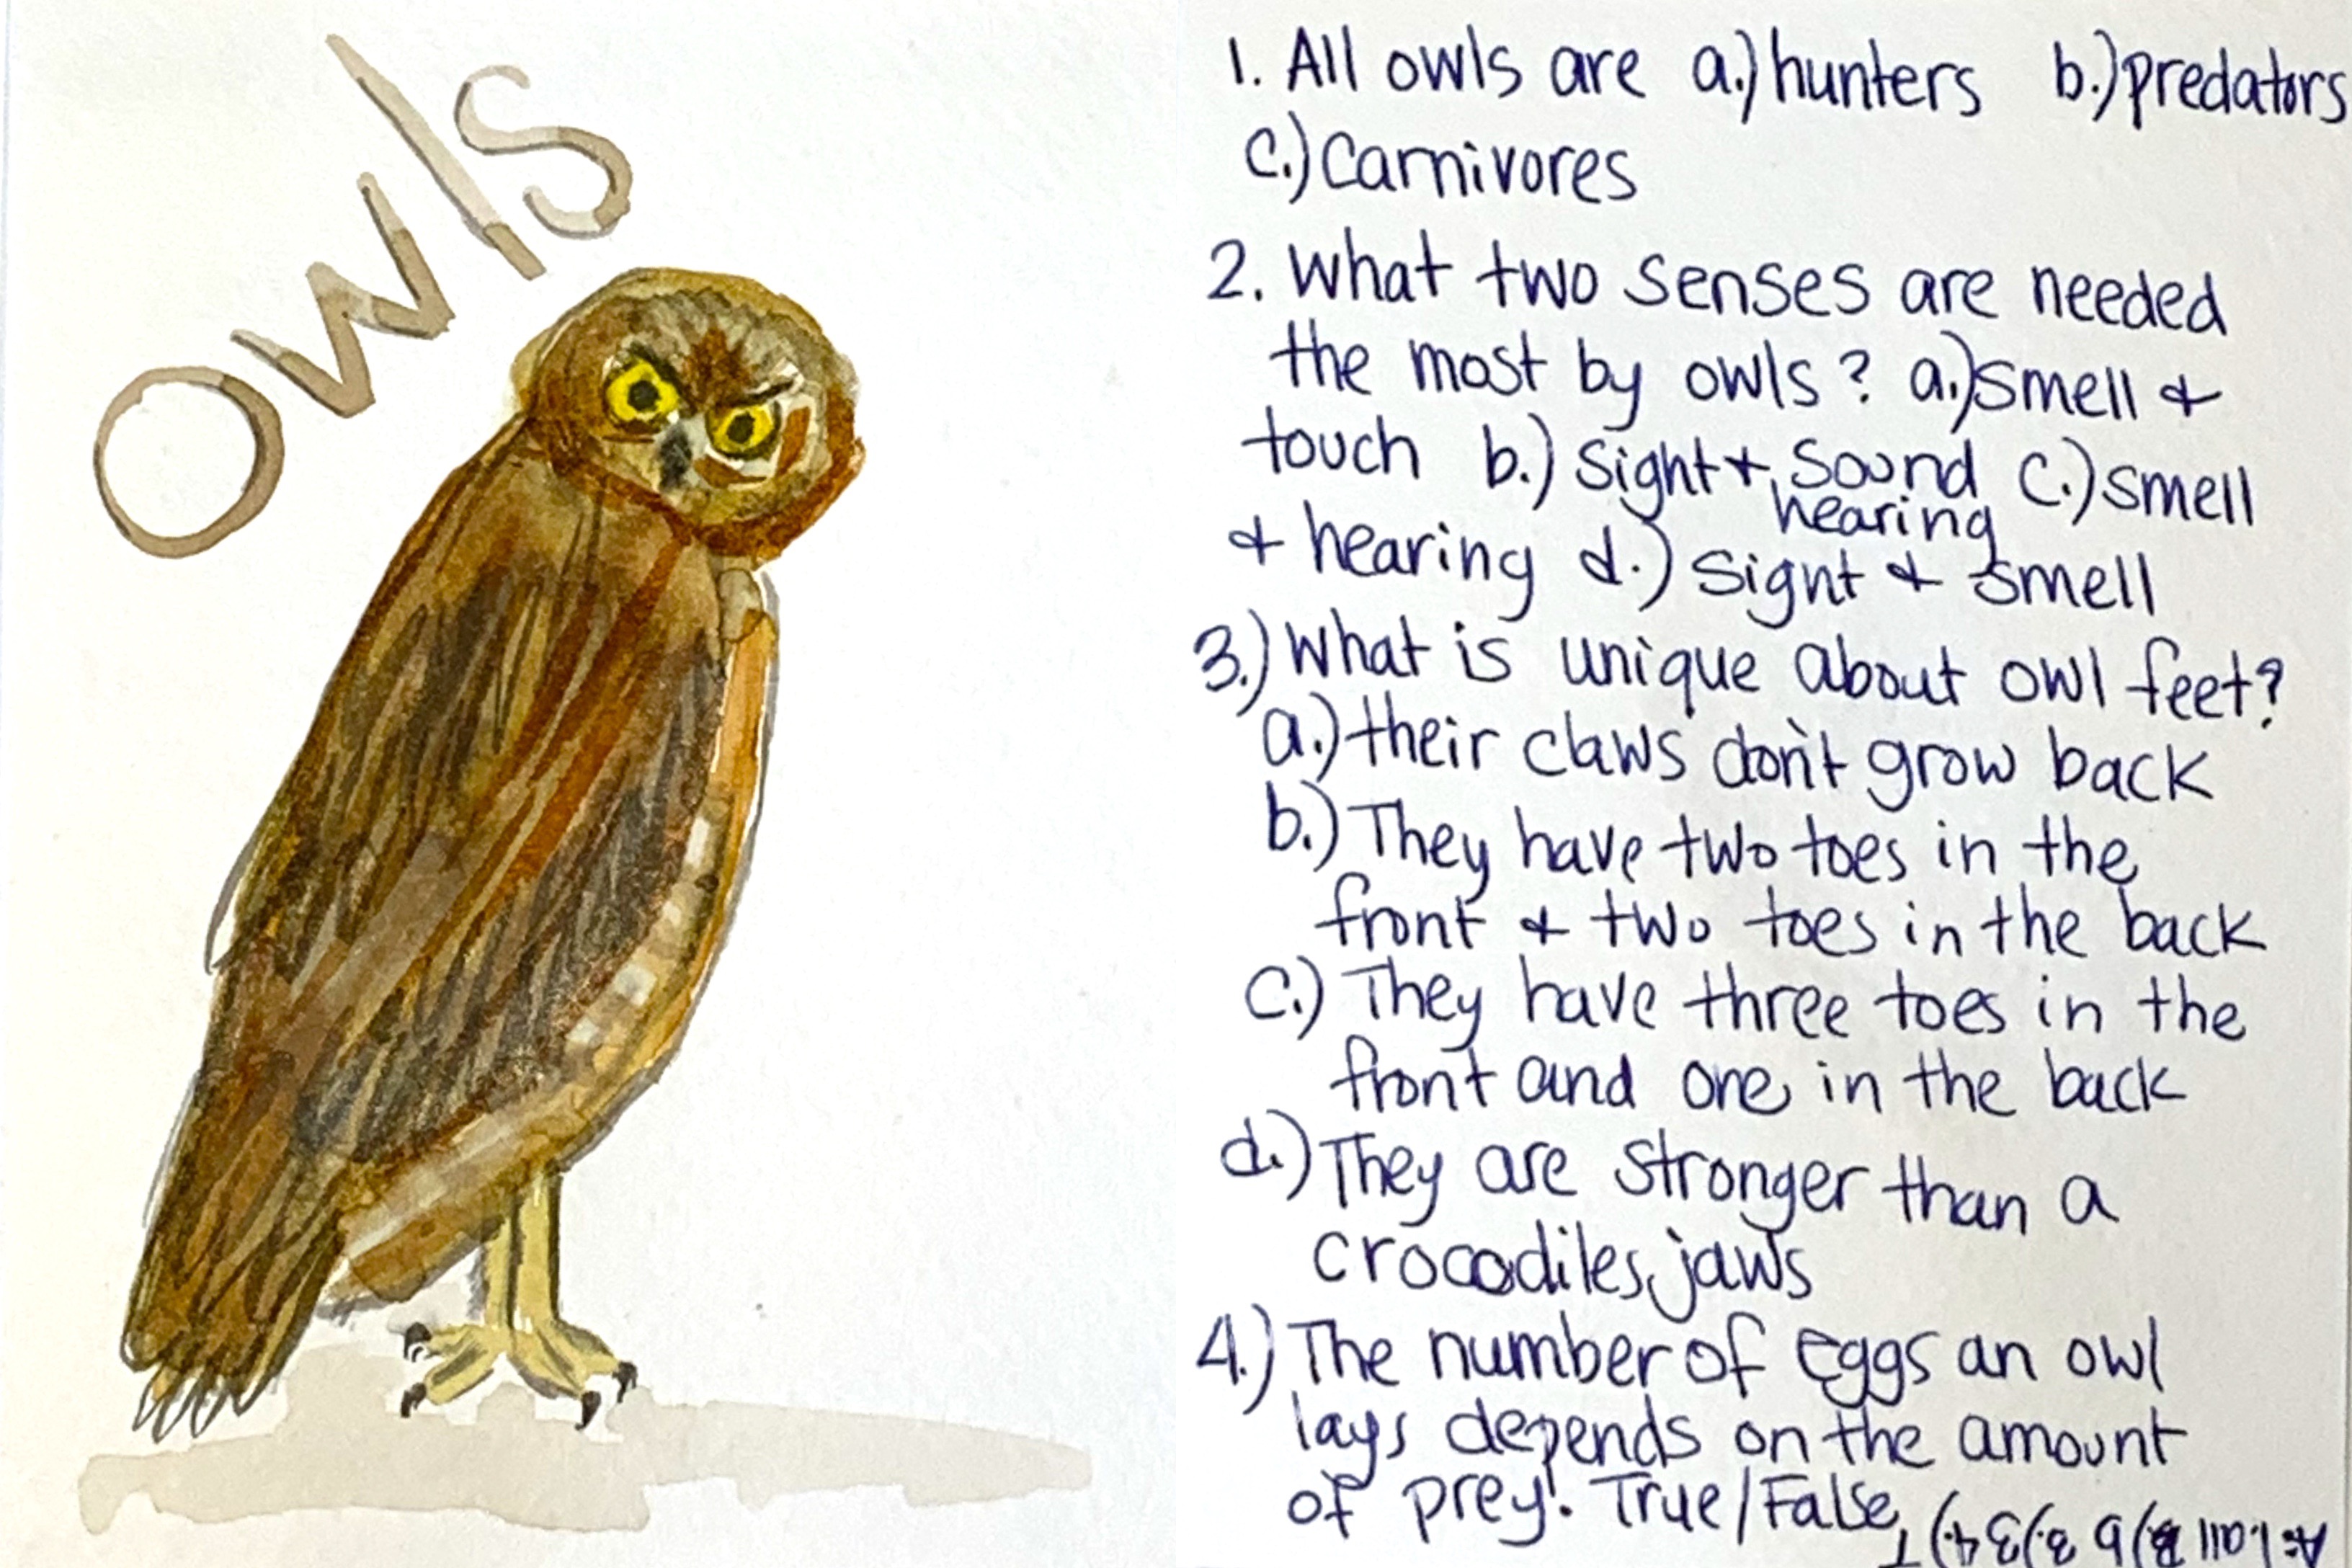 Owls
1. All owls are a.) hunters b.) predators
c.) Carnivores
2. What two senses are needed
the most by owls? a.) smell &
touch b.) Sight + Sound c.) smell
hearing
& hearing d.) Sight & smell
3.) What is unique about owl feet?
a.) their claws don't grow back
b.) They have two toes in the
front & two toes in the back
c.) They have three toes in the
front and one in the back
d.) They are stronger than a
crocodiles jaws
4.) The number of eggs an owl
lays depends on the amount
of prey. True/False
A: 1. all 2.) b 3.) 4.) T